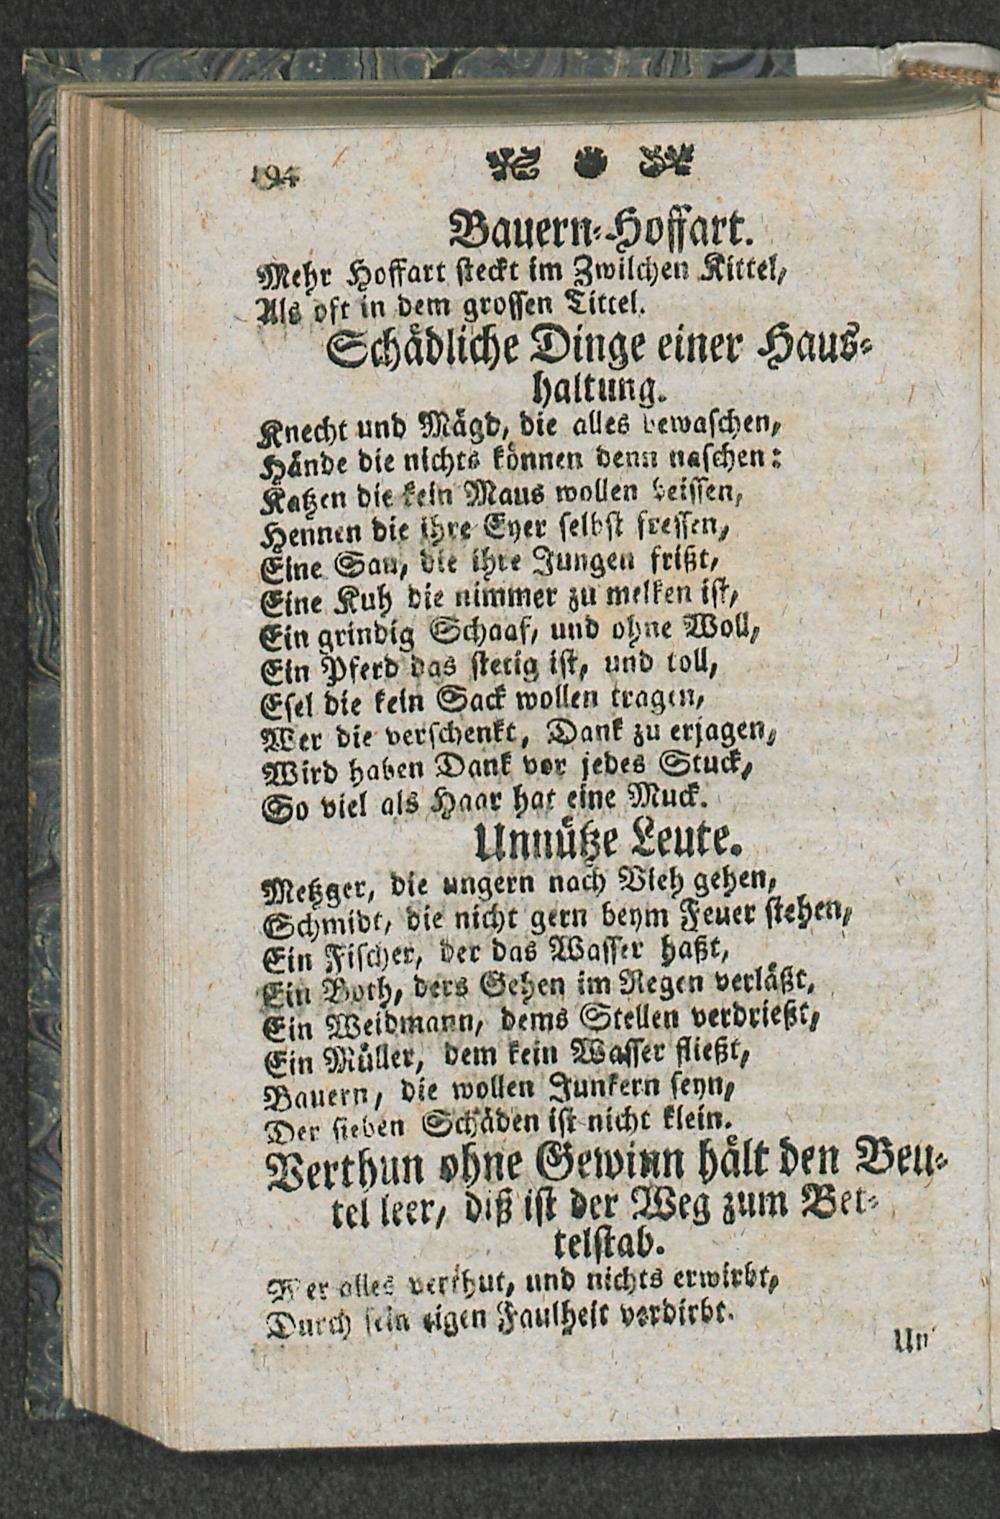 194
Bauern-Hoffart.
Mehr Hoffart steckt im Zwilchen Kittel,
Als oft in dem grossen Tittel.
Schädliche Dinge einer Haus-
haltung.
Knecht und Mägd, die alles bewaschen,
Hände die nichts können denn naschen:
Katzen die kein Maus wollen beissen,
Hennen die ihre Eyer selbst fressen,
Eine Sau, die ihre Jungen frißt,
Eine Kuh die nimmer zu melken ist,
Ein grindig Schaaf, und ohne Woll,
Ein Pferd das stetig ist, und toll,
Esel die kein Sack wollen tragen,
Wer die verschenkt, Dank zu erjagen,
Wird haben Dank vor jedes Stuck,
So viel als Haar hat eine Muck.
Unnütze Leute.
Metzger, die ungern nach Vieh gehen,
Schmidt, die nicht gern beym Feuer stehen,
Ein Fischer, der das Wasser haßt,
Ein Both, ders Gehen im Regen verläßt,
Ein Weidmann, dems Stellen verdrießt,
Ein Müller, dem kein Wasser fließt,
Bauern, die wollen Junkern seyn,
Der sieben Schäden ist nicht klein.
Verthun ohne Gewinn hält den Beu-
tel leer, diß ist der Weg zum Bet-
telstab.
Wer alles verthut, und nichts erwirbt,
Durch sein eigen Faulheit verdirbt.
Un